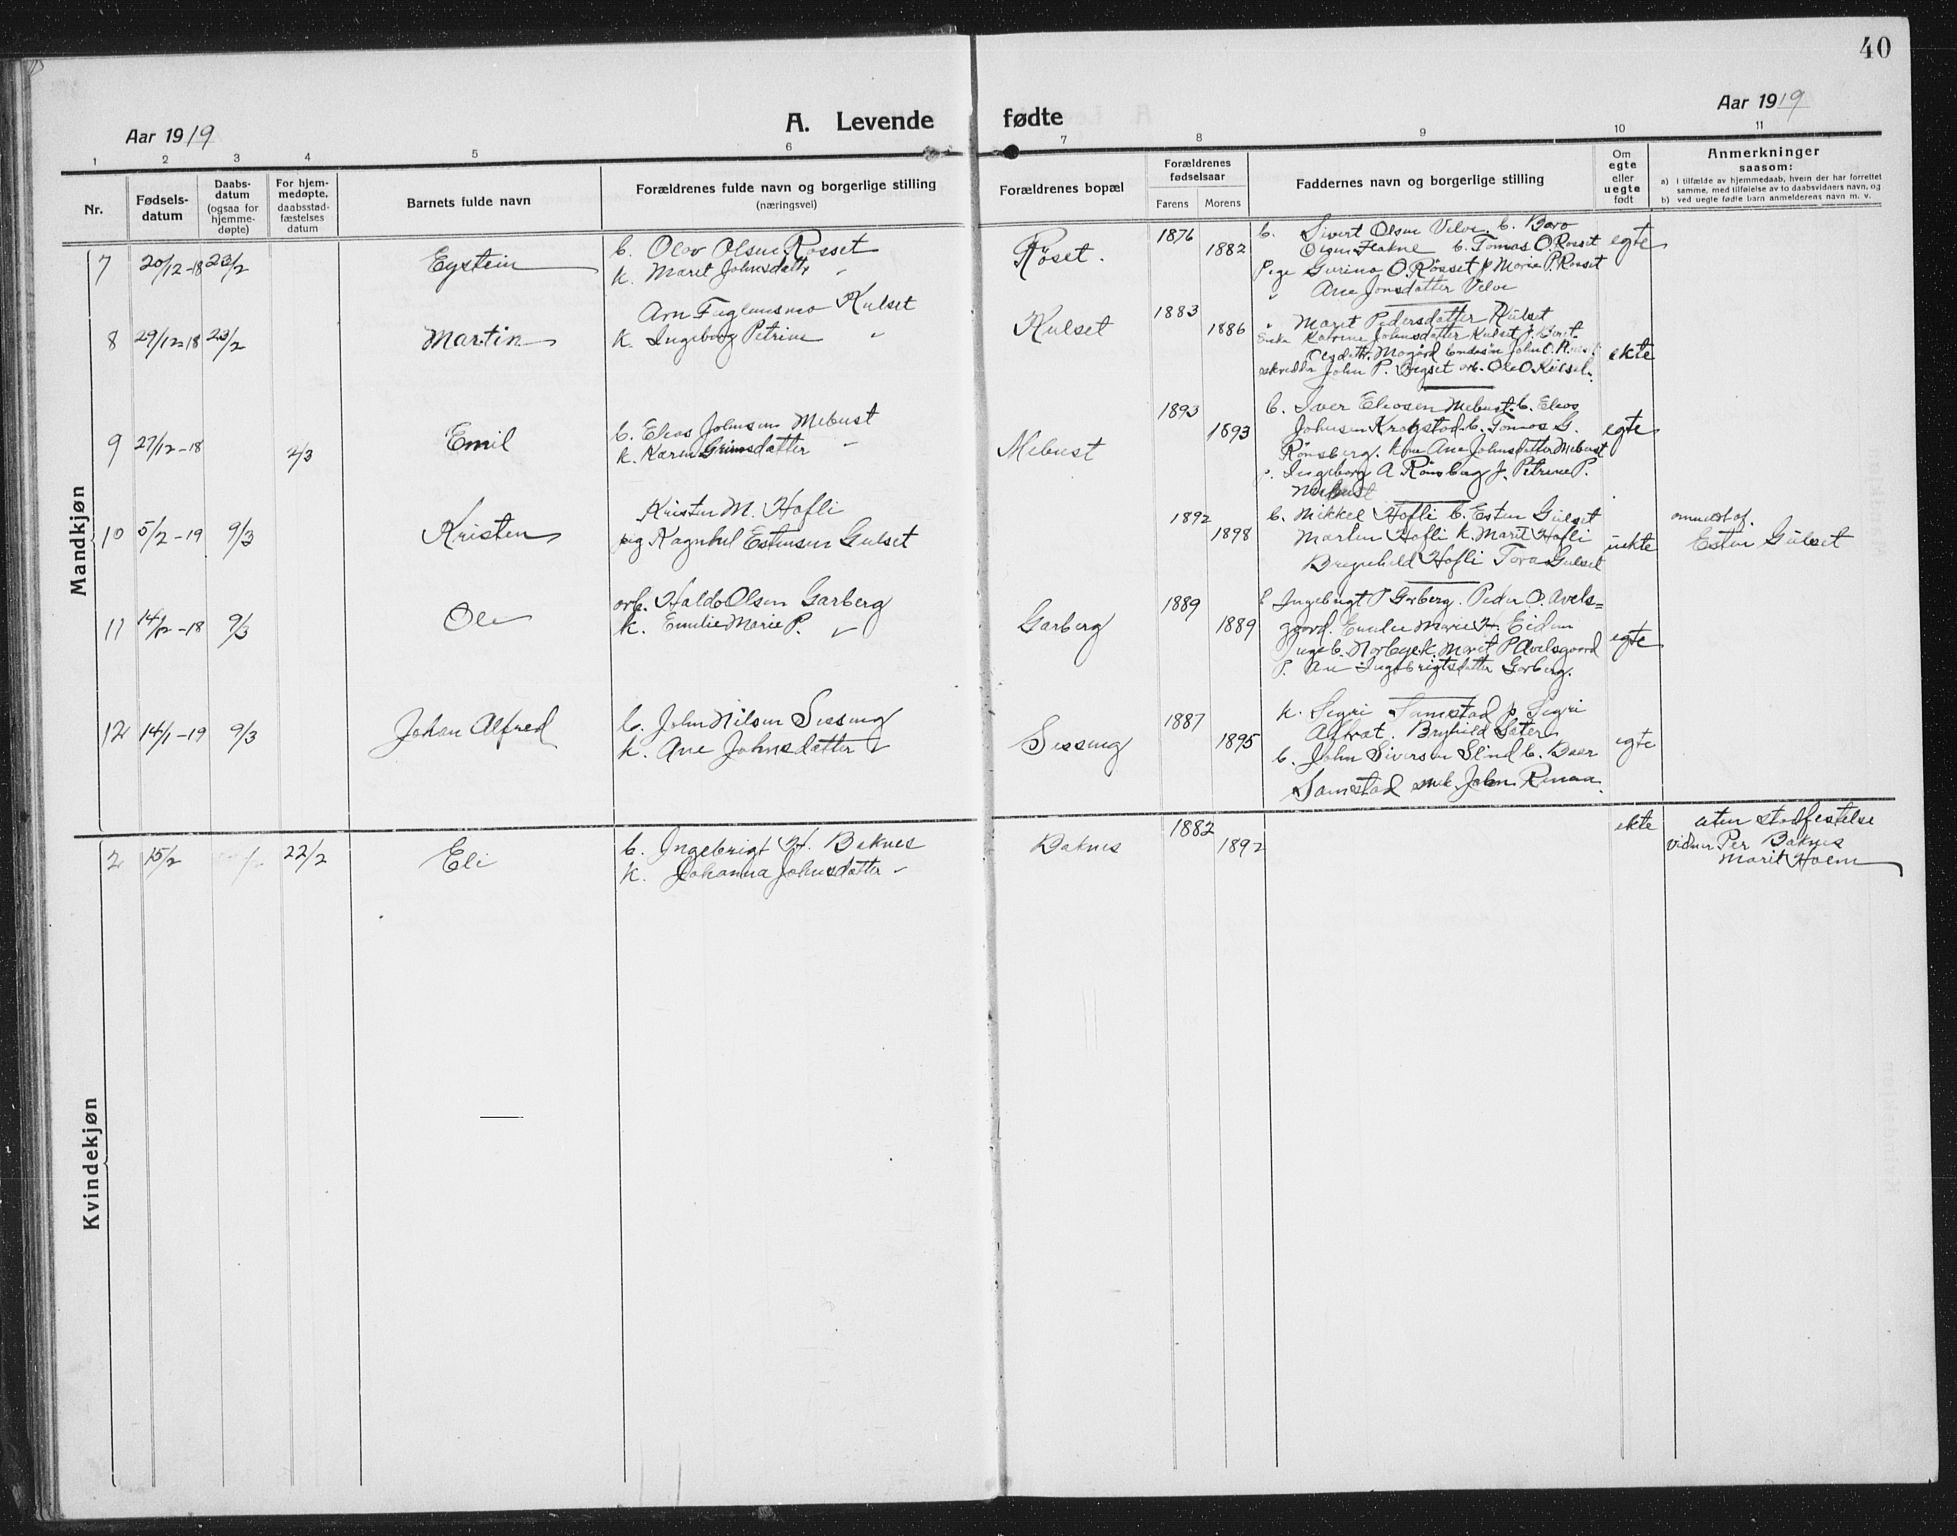 40
Aar 1919
A. Levende fødte
Aar 1919
1 2 3 4 5 6 7 8 9 10 11
Nr.
Fødsels-
datum
Daabs-
datum
(ogsaa for
hjemme-
døpte)
For hjem-
medøpte,
daabsstad-
fæstelses
datum
Barnets fulde navn
Forældrenes fulde navn og borgerlige stilling
(næringsvei)
Forældrenes bopæl
Forældrenes
fødselsaar
Farens Morens
Faddernes navn og borgerlige stilling
Om
egte
eller
uegte
født
Anmerkninger
saasom:
a) i tilfælde av hjemmedaab, hvem der har forrettet
samme, med tilføielse av to daabsvidners navn, og
b) ved uegte fødte barn anmelderens navn m. v.
Mandkjøn
7 20/12-18 23/2 Eystein
b. Olav Olsen Røsset
k. Marit Johnsdattr "
Røset.
1876 1882
b. Sivert Olsen Velve. b. Baro
Olsen Flakne b. Tomas O. Rosset
Pige Gurina O. Røsset p Marie P. Rosset
" Ane Jonsdatter Velve
egte
8 29/12-18 23/2 Martin
Arn Fuglemsmo Kulset
k. Ingeborg Petrine "
Kulset
1883 1886
" Marit Pedersdatter Kulset
Enke Katrine Johnsdatter Kulset p. Berit
Olsdattr. Mogård John O.
skredder John P. Bygset arb. Ole O. Kulset.
ekte
9 27/12-18 2/3 Emil
b. Elias Johnsen Mebust
k. Karen Grimsdatter "
Mebust
1893 1893
b. Iver Eliasen Mebust. b. Elias
Johnsen Krogstad. b. Tomas G.
Rønsberg. kone Ane Johnsdatter Mebust
p. Ingeborg A Rønsberg p. Petrine P.
Mebust
egte
10 5/2-19 9/3 Kristen
Kristen M. Hofli
pig Ragnhil Estensen Gulset
1892 1898
b. Mikkel Hofli b. Esten Gulset
Martin Hofli k. Marit Hofli
Brynhild Hofli Tora Gulset
uekte
anmeldt af.
Esten Gulset
11 14/12-18 9/3 Ole
arb. Haldo Olsen Garberg
k. Emilie Marie P. "
Garberg
1889 1889
Ingebrigt P Garberg. Peder O. Avels=
gaard. Emilie Marie H. Eidem
Norbye k. Marit P Avelsgaard
P. Ane Ingebrigtsdatter Garberg.
egte
12 14/1-19 9/3 Johan Alfred
b. John Nilsen Sesseng
k. Ane Johnsdatter "
Sesseng
1887 1895
k. Segri Samstad p Segri
Aftret. Brynhild Sæter
b. John Siversen Slind b. Baar
Samstad snek. John Renaa.
egte
Kvindekjøn
2 15/2 22/2 Eli
b. Ingebrigt H. Baknes
k. Johanna Johnsdatter "
Baknes
1882 1892
ekte
uten stadfestelse
vidner Per Baknes
Marit Hoem